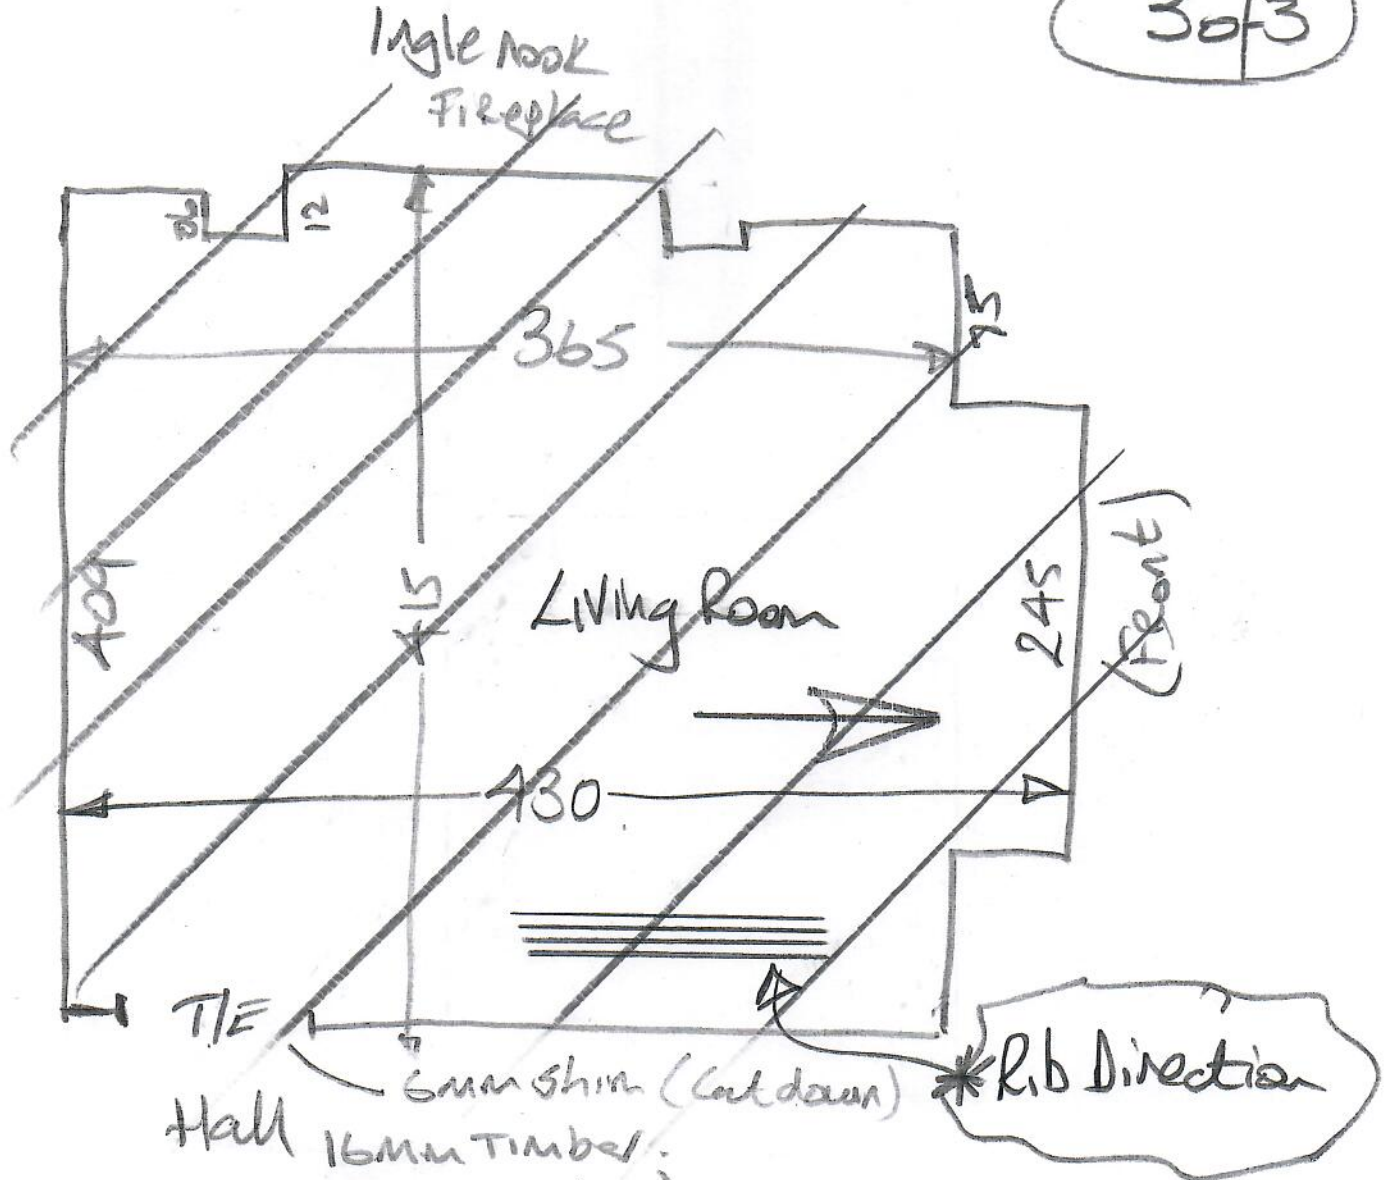 3 of 3
Ingle nook
Fireplace
06
12
365
75
409
415
Living Room
245
(Front)
430
T/E
6mm shim (Cut down)
Hall
16mm Timber.
* Rib Direction